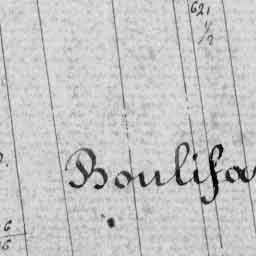 621
1/2
Boulifa
6
16